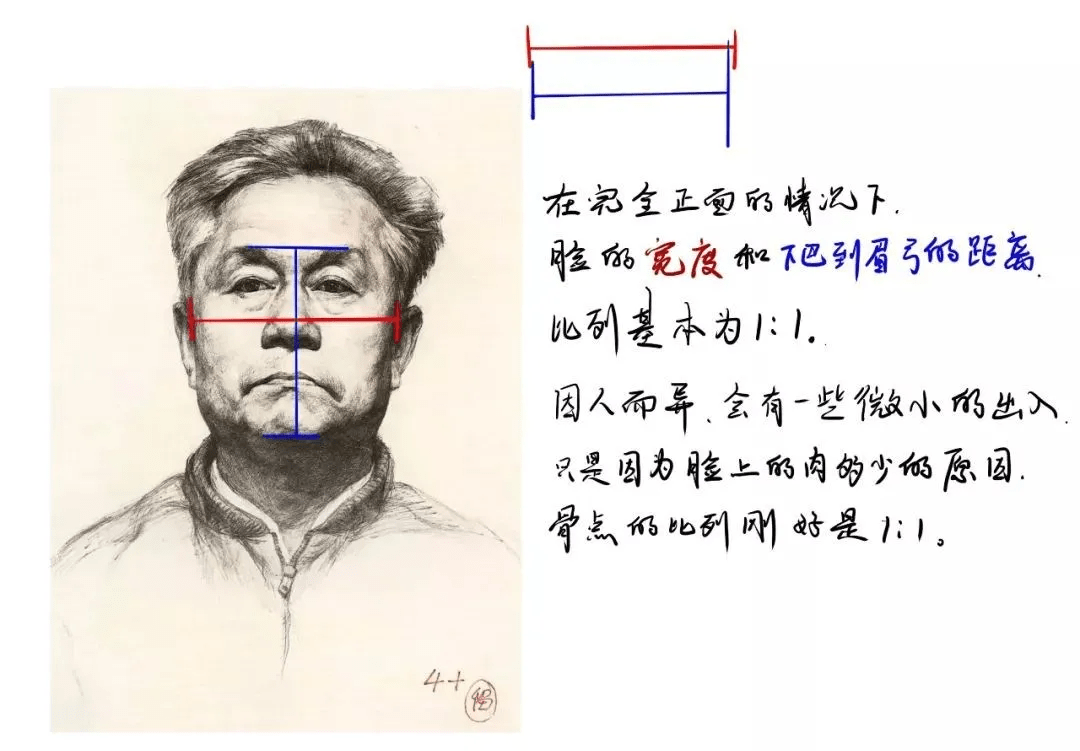 在完全正面的情况下.
脸的宽度和下巴到眉弓的距离.
比列基本为1:1。
因人而异、会有一些微小的出入.
只是因为脸上的肉多少的原因.
骨点的比列刚好是1:1。
4+